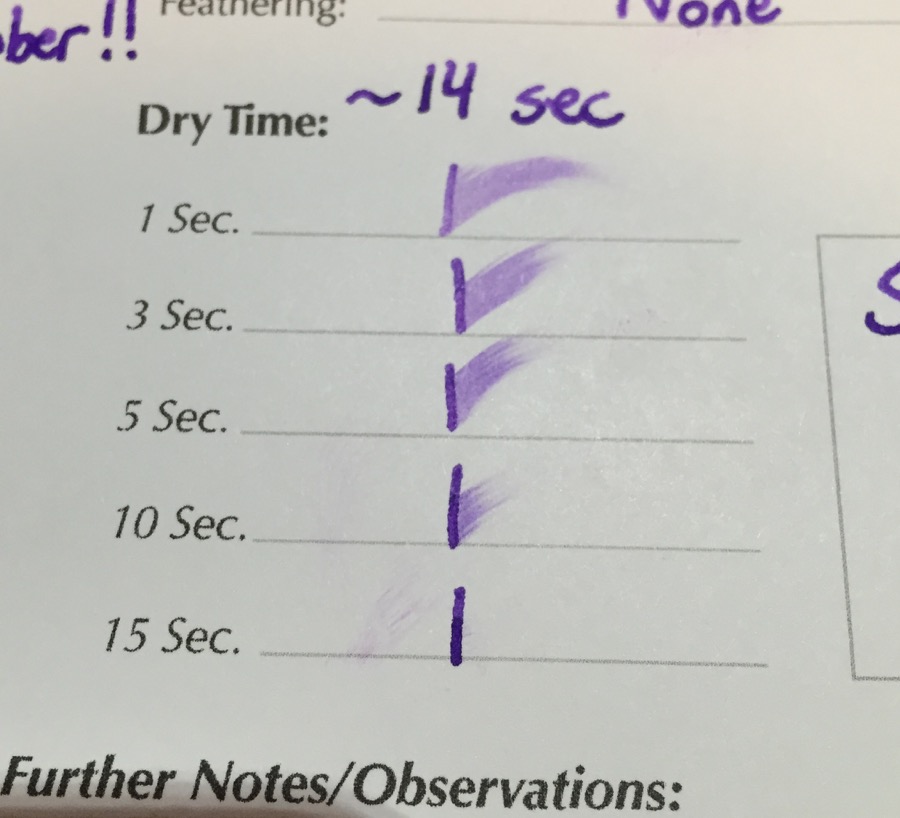 Feathering: None
ber!!
Dry Time: ~14 sec
1 Sec.
3 Sec.
5 Sec.
10 Sec.
15 Sec.
Further Notes/Observations: